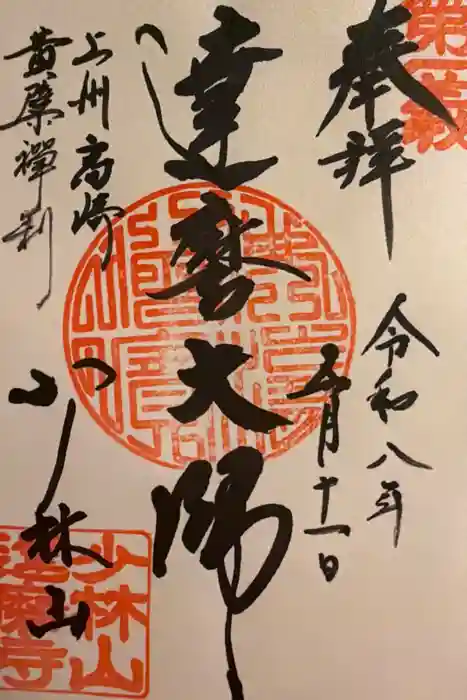 第一義
奉拝
令和八年
五月十一日
達磨大師
上州高崎
黄檗禪刹
少林山
少林山
達磨寺